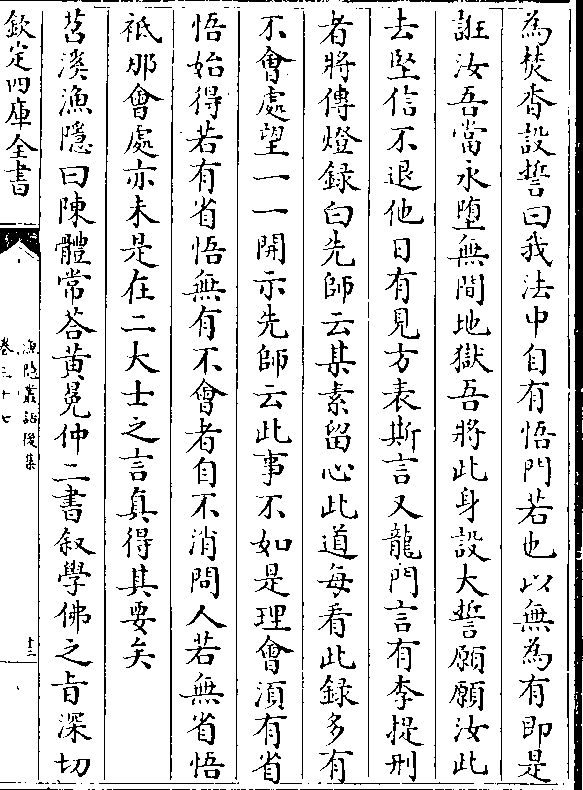 為焚香設誓曰我法中自有悟門若也以無為有即是
誑汝吾當永堕無間地獄吾將此身設大誓願願汝此
去堅信不退他日有見方表斯言又龍門言有李提刑
者將傳燈録白先師云某素留心此道每看此録多有
不會處望一一開示先師云此事不如是理會須有省
悟始得若有省悟無有不會者自不消問人若無省悟
祇那會處亦未是在二大士之言真得其要矣
苕溪漁隱曰陳體常答黄冕仲二書叙學佛之旨深切
欽定四庫全書
漁隱叢話後集
卷三十七
十三